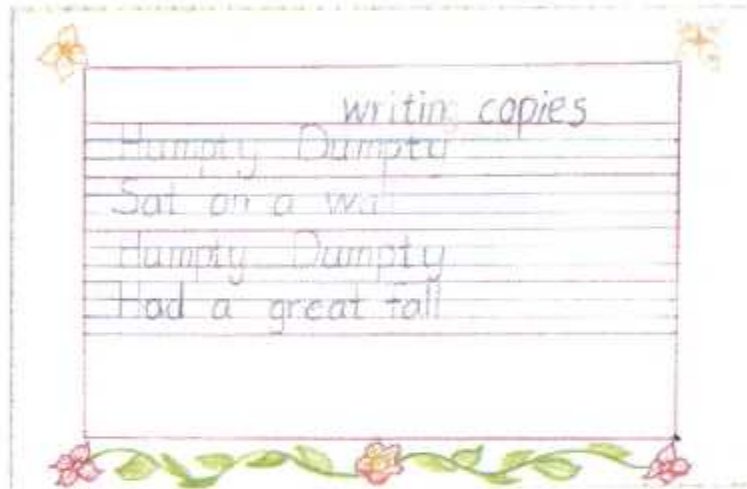 writing copies
Humpty Dumpty
Sat on a wall
Humpty Dumpty
Had a great fall